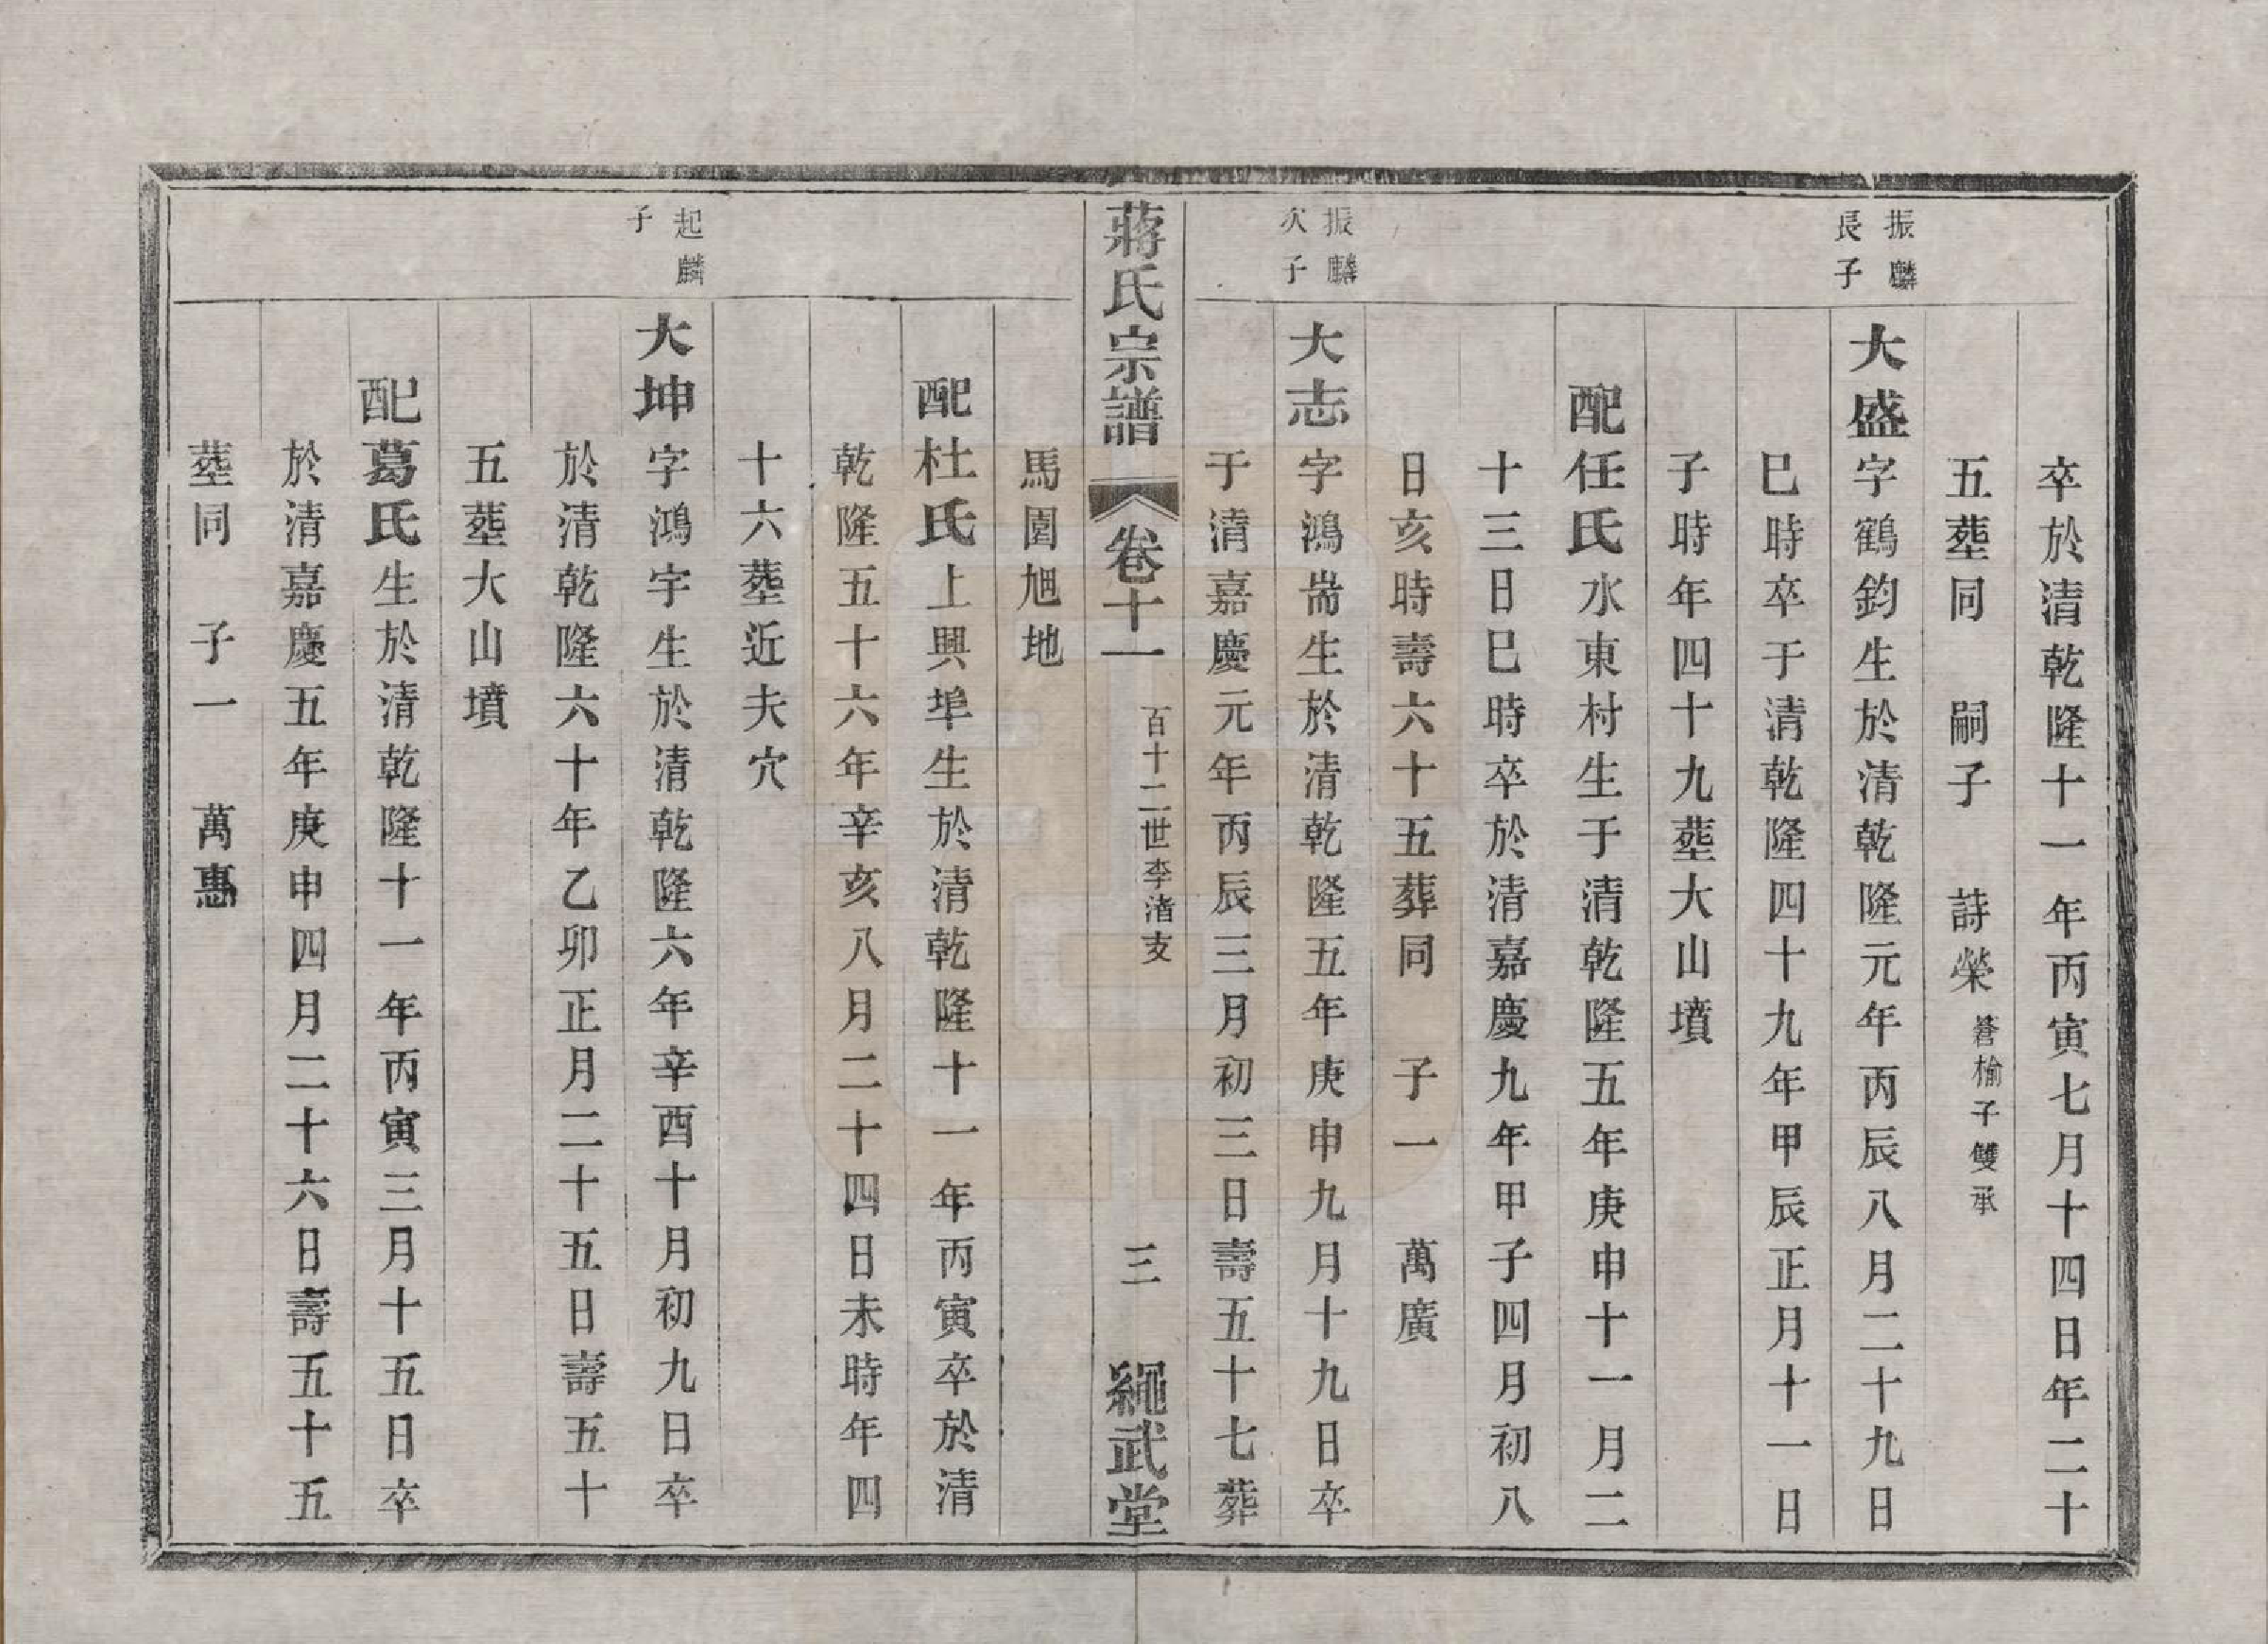 卒於清乾隆十一年丙寅七月十四日年二十
五塟同　嗣子　詩榮　蒼榆子雙承
振麟長子
大盛字鶴鈞生於清乾隆元年丙辰八月二十九日
巳時卒于清乾隆四十九年甲辰正月十一日
子時年四十九塟大山墳
配任氏水東村生于清乾隆五年庚申十一月二
十三日巳時卒於清嘉慶九年甲子四月初八
日亥時壽六十五葬同　子一　萬廣
振麟次子
大志字鴻耑生於清乾隆五年庚申九月十九日卒
于清嘉慶元年丙辰三月初三日壽五十七葬
蔣氏宗譜　卷十一　百十二世李渚支　三　繩武堂
馬園旭地
配杜氏上興埠生於清乾隆十一年丙寅卒於清
乾隆五十六年辛亥八月二十四日未時年四
十六塟近夫穴
起麟子
大坤字鴻宇生於清乾隆六年辛酉十月初九日卒
於清乾隆六十年乙卯正月二十五日壽五十
五塟大山墳
配葛氏生於清乾隆十一年丙寅三月十五日卒
於清嘉慶五年庚申四月二十六日壽五十五
塟同　子一　萬惠